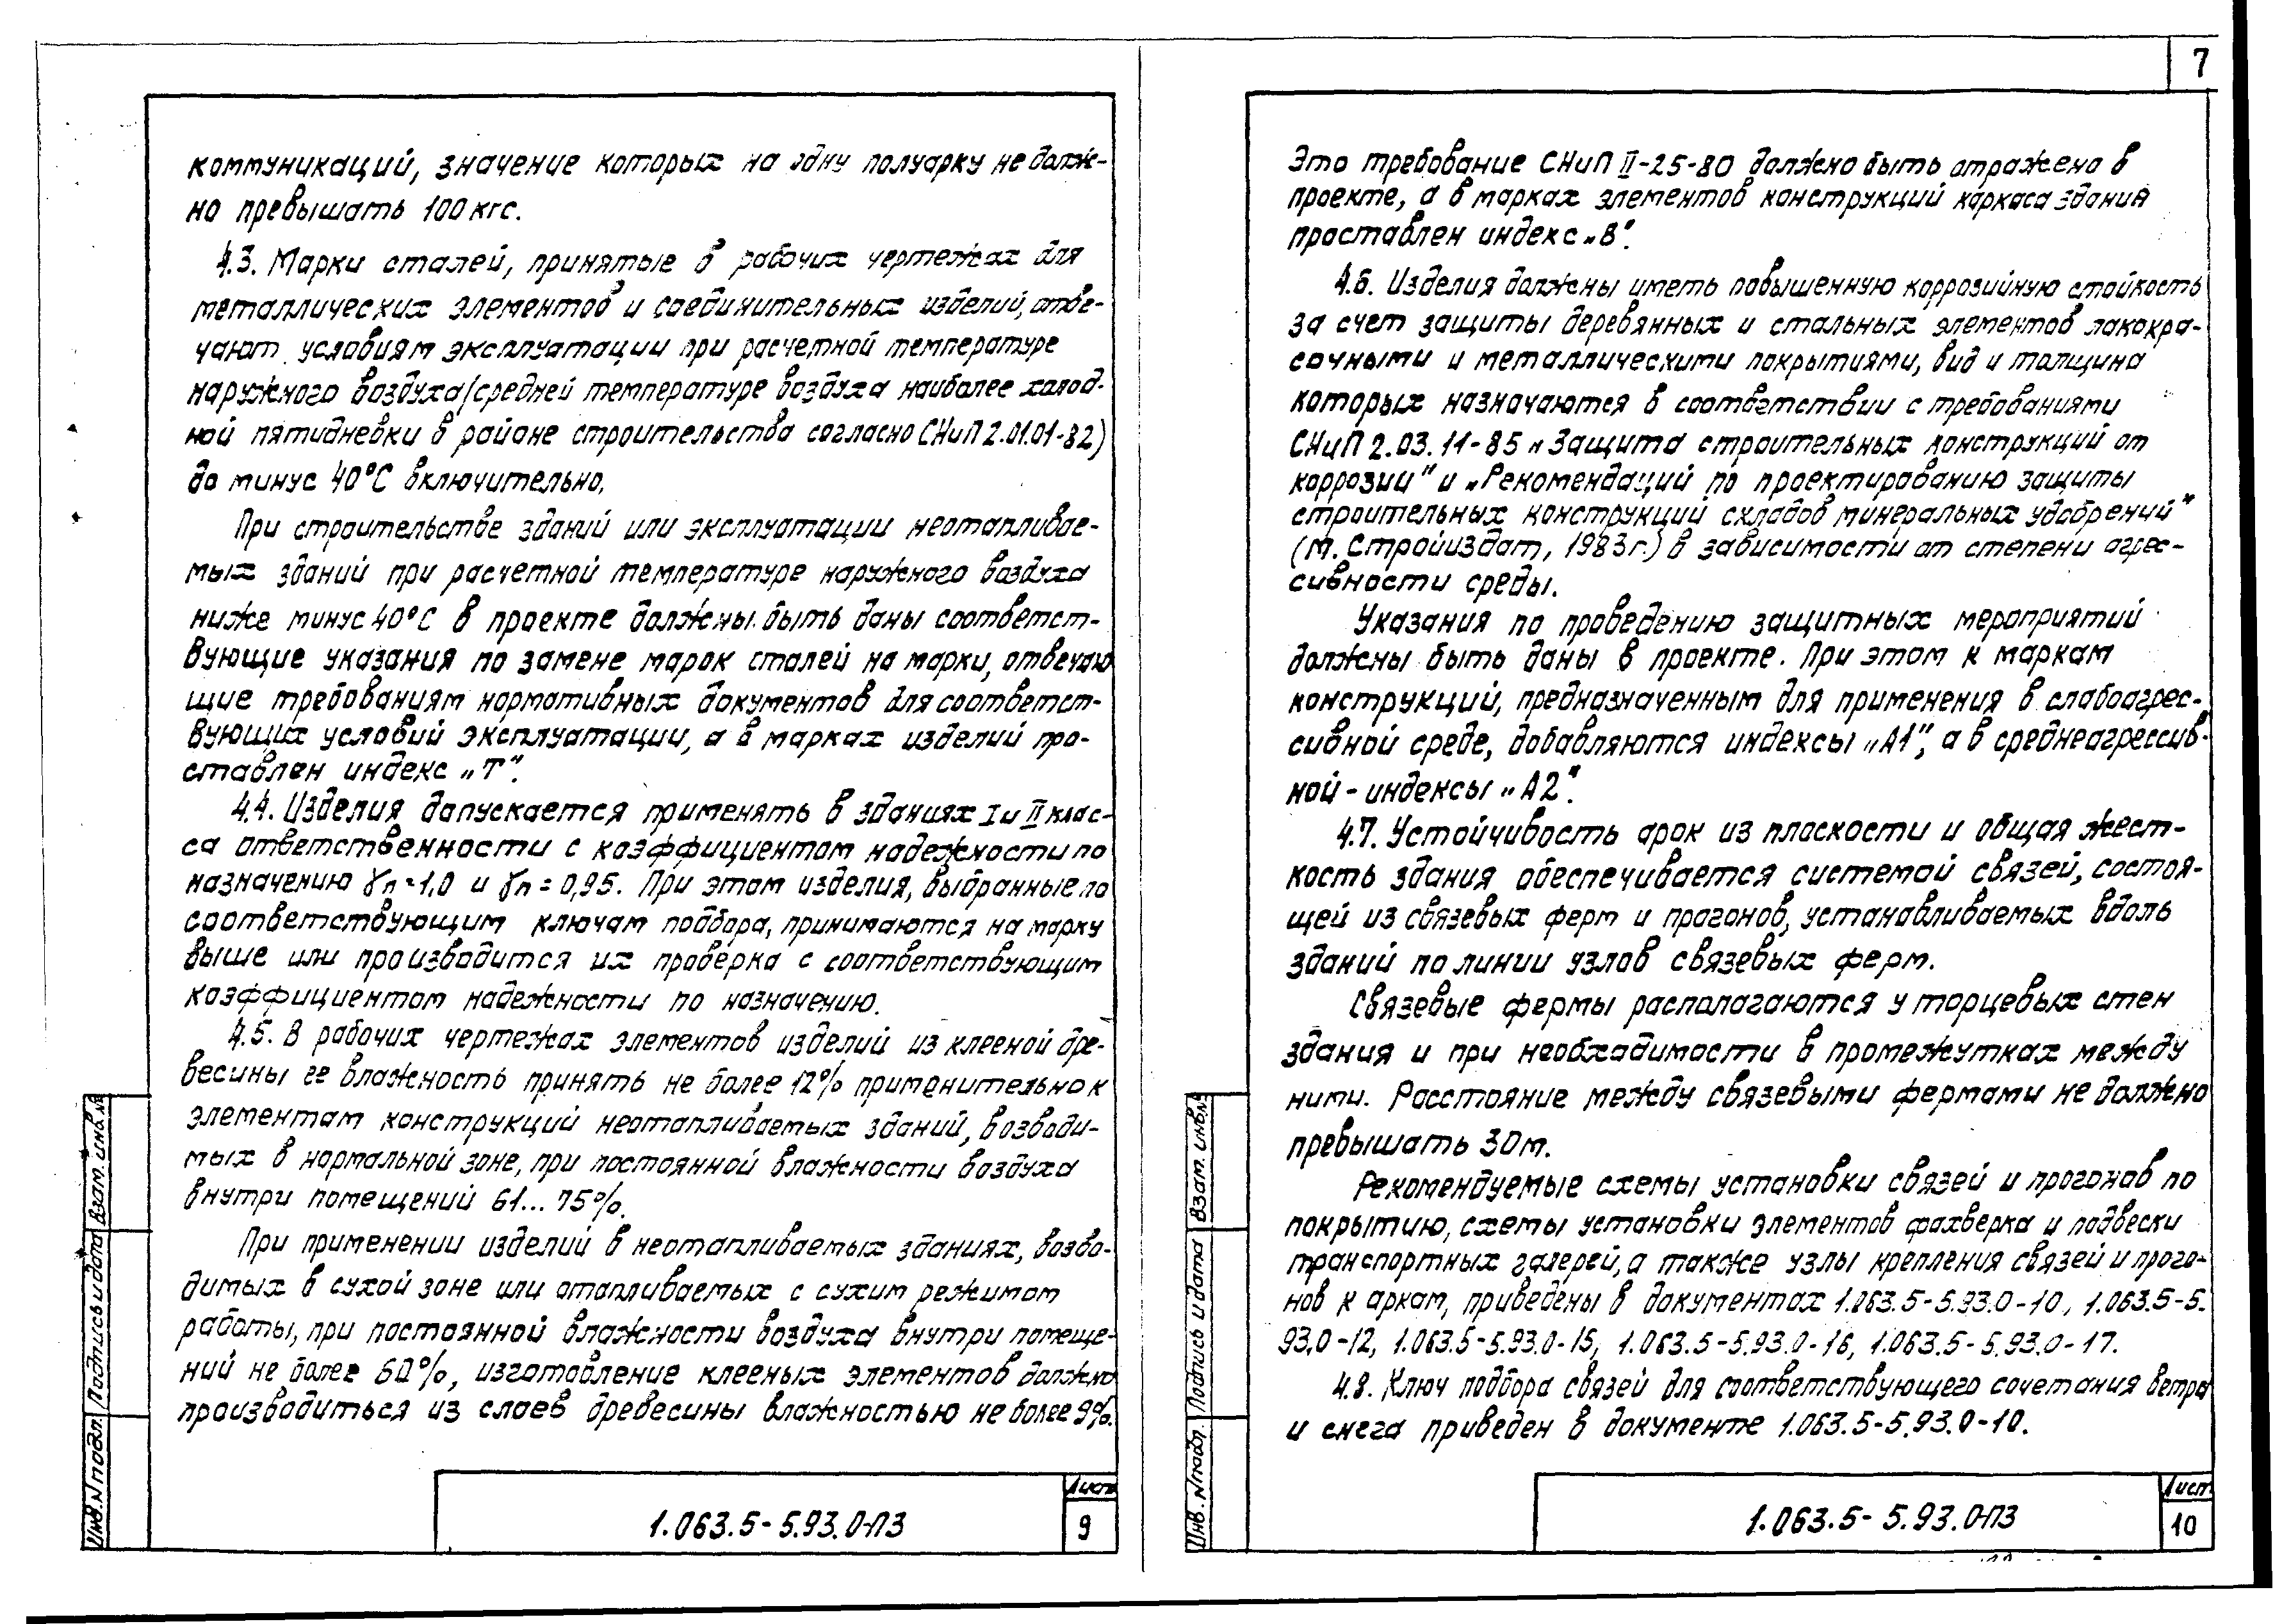 коммуникаций, значение которых на одну полуарку не долж-
но превышать 100 кгс.
4.3. Марки сталей, принятые в рабочих чертежах для
металлических элементов и соединительных изделий, отве-
чают условиям эксплуатации при расчетной температуре
наружного воздуха (средней температуре воздуха наиболее холод-
ной пятидневки в районе строительства согласно СНиП 2.01.01-82)
до минус 40°С включительно.
При строительстве зданий или эксплуатации неотапливае-
мых зданий при расчетной температуре наружного воздуха
ниже минус 40°С в проекте должны быть даны соответст-
вующие указания по замене марок сталей на марки, отвечаю
щие требованиям нормативных документов для соответст-
вующих условий эксплуатации, а в марках изделий про-
ставлен индекс „Т".
4.4. Изделия допускается применять в зданиях I и II клас-
са ответственности с коэффициентом надежности по
назначению γn=1,0 и γn=0,95. При этом изделия, выбранные по
соответствующим ключам подбора, принимаются на марку
выше или производится их проверка с соответствующим
коэффициентом надежности по назначению.
4.5. В рабочих чертежах элементов изделий из клееной дре-
весины ее влажность принять не более 12% применительно к
элементам конструкций неотапливаемых зданий, возводи-
мых в нормальной зоне, при постоянной влажности воздуха
внутри помещений 61... 75%.
При применении изделий в неотапливаемых зданиях, возво-
димых в сухой зоне или отапливаемых с сухим режимом
работы, при постоянной влажности воздуха внутри помеще-
ний не более 60%, изготовление клееных элементов должно
производиться из слоев древесины влажностью не более 9%.
Инв. N подл. Подпись и дата Взам. инв. N
1.063.5-5.93.0-ПЗ
Лист
9
7
Это требование СНиП II-25-80 должно быть отражено в
проекте, а в марках элементов конструкций каркаса здания
проставлен индекс „В".
4.6. Изделия должны иметь повышенную коррозийную стойкость
за счет защиты деревянных и стальных элементов лакокра-
сочными и металлическими покрытиями, вид и толщина
которых назначаются в соответствии с требованиями
СНиП 2.03.11-85 „Защита строительных конструкций от
коррозии" и „Рекомендаций по проектированию защиты
строительных конструкций складов минеральных удобрений"
(М. Стройиздат, 1983г.) в зависимости от степени агрес-
сивности среды.
Указания по проведению защитных мероприятий
должны быть даны в проекте. При этом к маркам
конструкций, предназначенным для применения в слабоагрес-
сивной среде, добавляются индексы „А1", а в среднеагрессив-
ной - индексы „А2".
4.7. Устойчивость арок из плоскости и общая жест-
кость здания обеспечивается системой связей, состоя-
щей из связевых ферм и прогонов, устанавливаемых вдоль
зданий по линии узлов связевых ферм.
Связевые фермы располагаются у торцевых стен
здания и при необходимости в промежутках между
ними. Расстояние между связевыми фермами не должно
превышать 30м.
Рекомендуемые схемы установки связей и прогонов по
покрытию, схемы установки элементов фахверка и подвески
транспортных галерей, а также узлы крепления связей и прого-
нов к аркам, приведены в документах 1.063.5-5.93.0-10, 1.063.5-5.
93.0-12, 1.063.5-5.93.0-15, 1.063.5-5.93.0-16, 1.063.5-5.93.0-17.
4.8. Ключ подбора связей для соответствующего сочетания ветра
и снега приведен в документе 1.063.5-5.93.0-10.
Инв. N подл. Подпись и дата Взам. инв. N
1.063.5-5.93.0-ПЗ
Лист
10